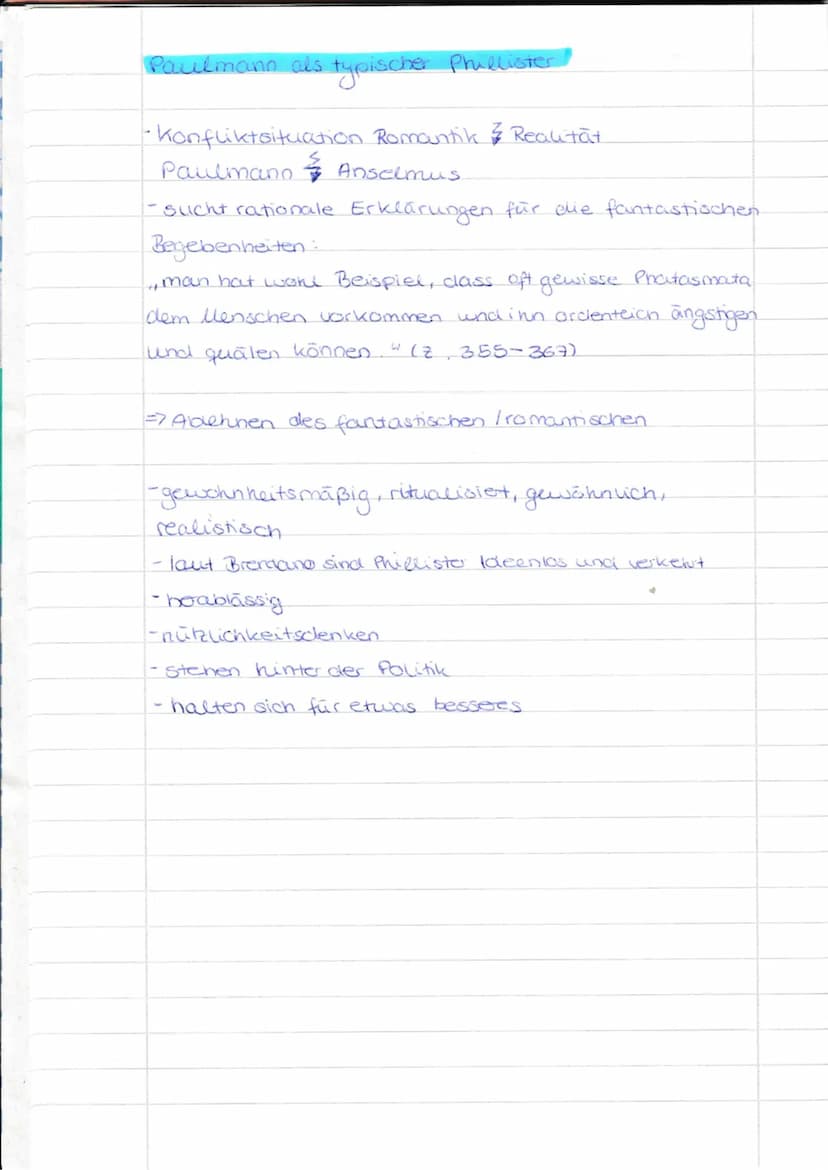 Paulmann als typischer Phillister
- Konfliktsituation Romantik ↯ Realität
Paulmann ↯ Anselmus
- sucht rationale Erklärungen für die fantastischen
Begebenheiten:
„man hat wohl Beispiel, dass oft gewisse Phatasmata
dem Menschen vorkommen und ihn ordentlich ängstigen
und quälen können." (Z. 355-367)
=> Ablehnen des fantastischen/romantischen
- gewohnheitsmäßig, ritualisiet, gewöhnlich,
realistisch
- laut Brentano sind Phillister Ideenlos und verkehrt
- herablässig
- nützlichkeitsdenken
- stehen hinter der Politik
- halten sich für etwas besseres